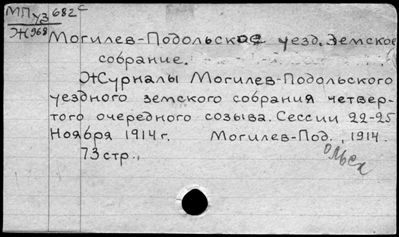 МП 682 С
уз
Ж 968
Могилев-Подольское уезд. Земское
собрание.
Журналы Могилев-Подольского
уездного земского собрания четвер-
того очередного созыва. Сессии 22-25
Ноября 1914 г. Могилев-Под., 1914.
73 стр.,